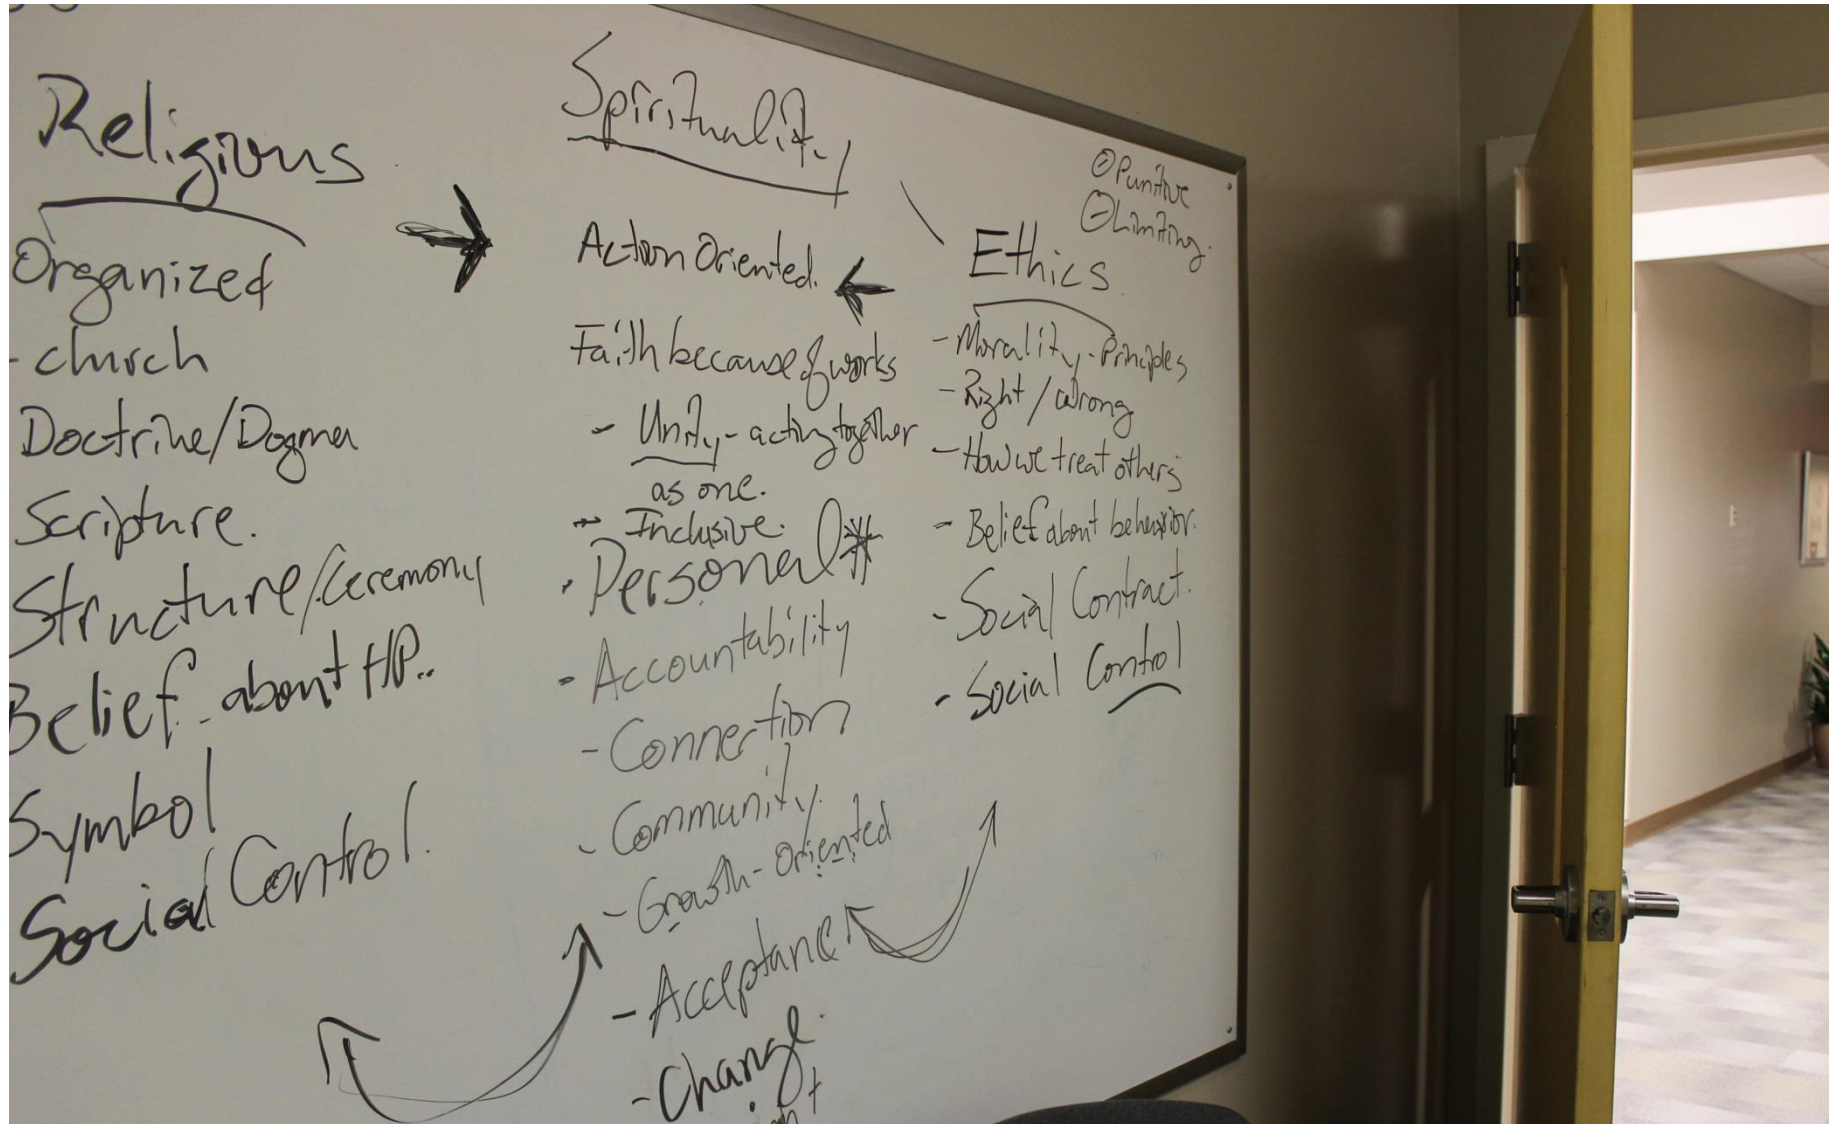 Religious
Organized
- church
Doctrine/Dogma
Scripture.
Structure/Ceremony
Belief about HP..
Symbol
Social Control.
Spirituality
Action Oriented.
Faith because of works
- Unity - acting together
as one.
- Inclusive.
- Personal*
- Accountability
- Connection
- Community.
- Growth-Oriented
- Acceptance
- Change.
⊖Punitive
⊖Limiting.
Ethics.
- Morality - Principles
- Right / Wrong
- How we treat others
- Belief about behavior.
- Social Contract.
- Social Control